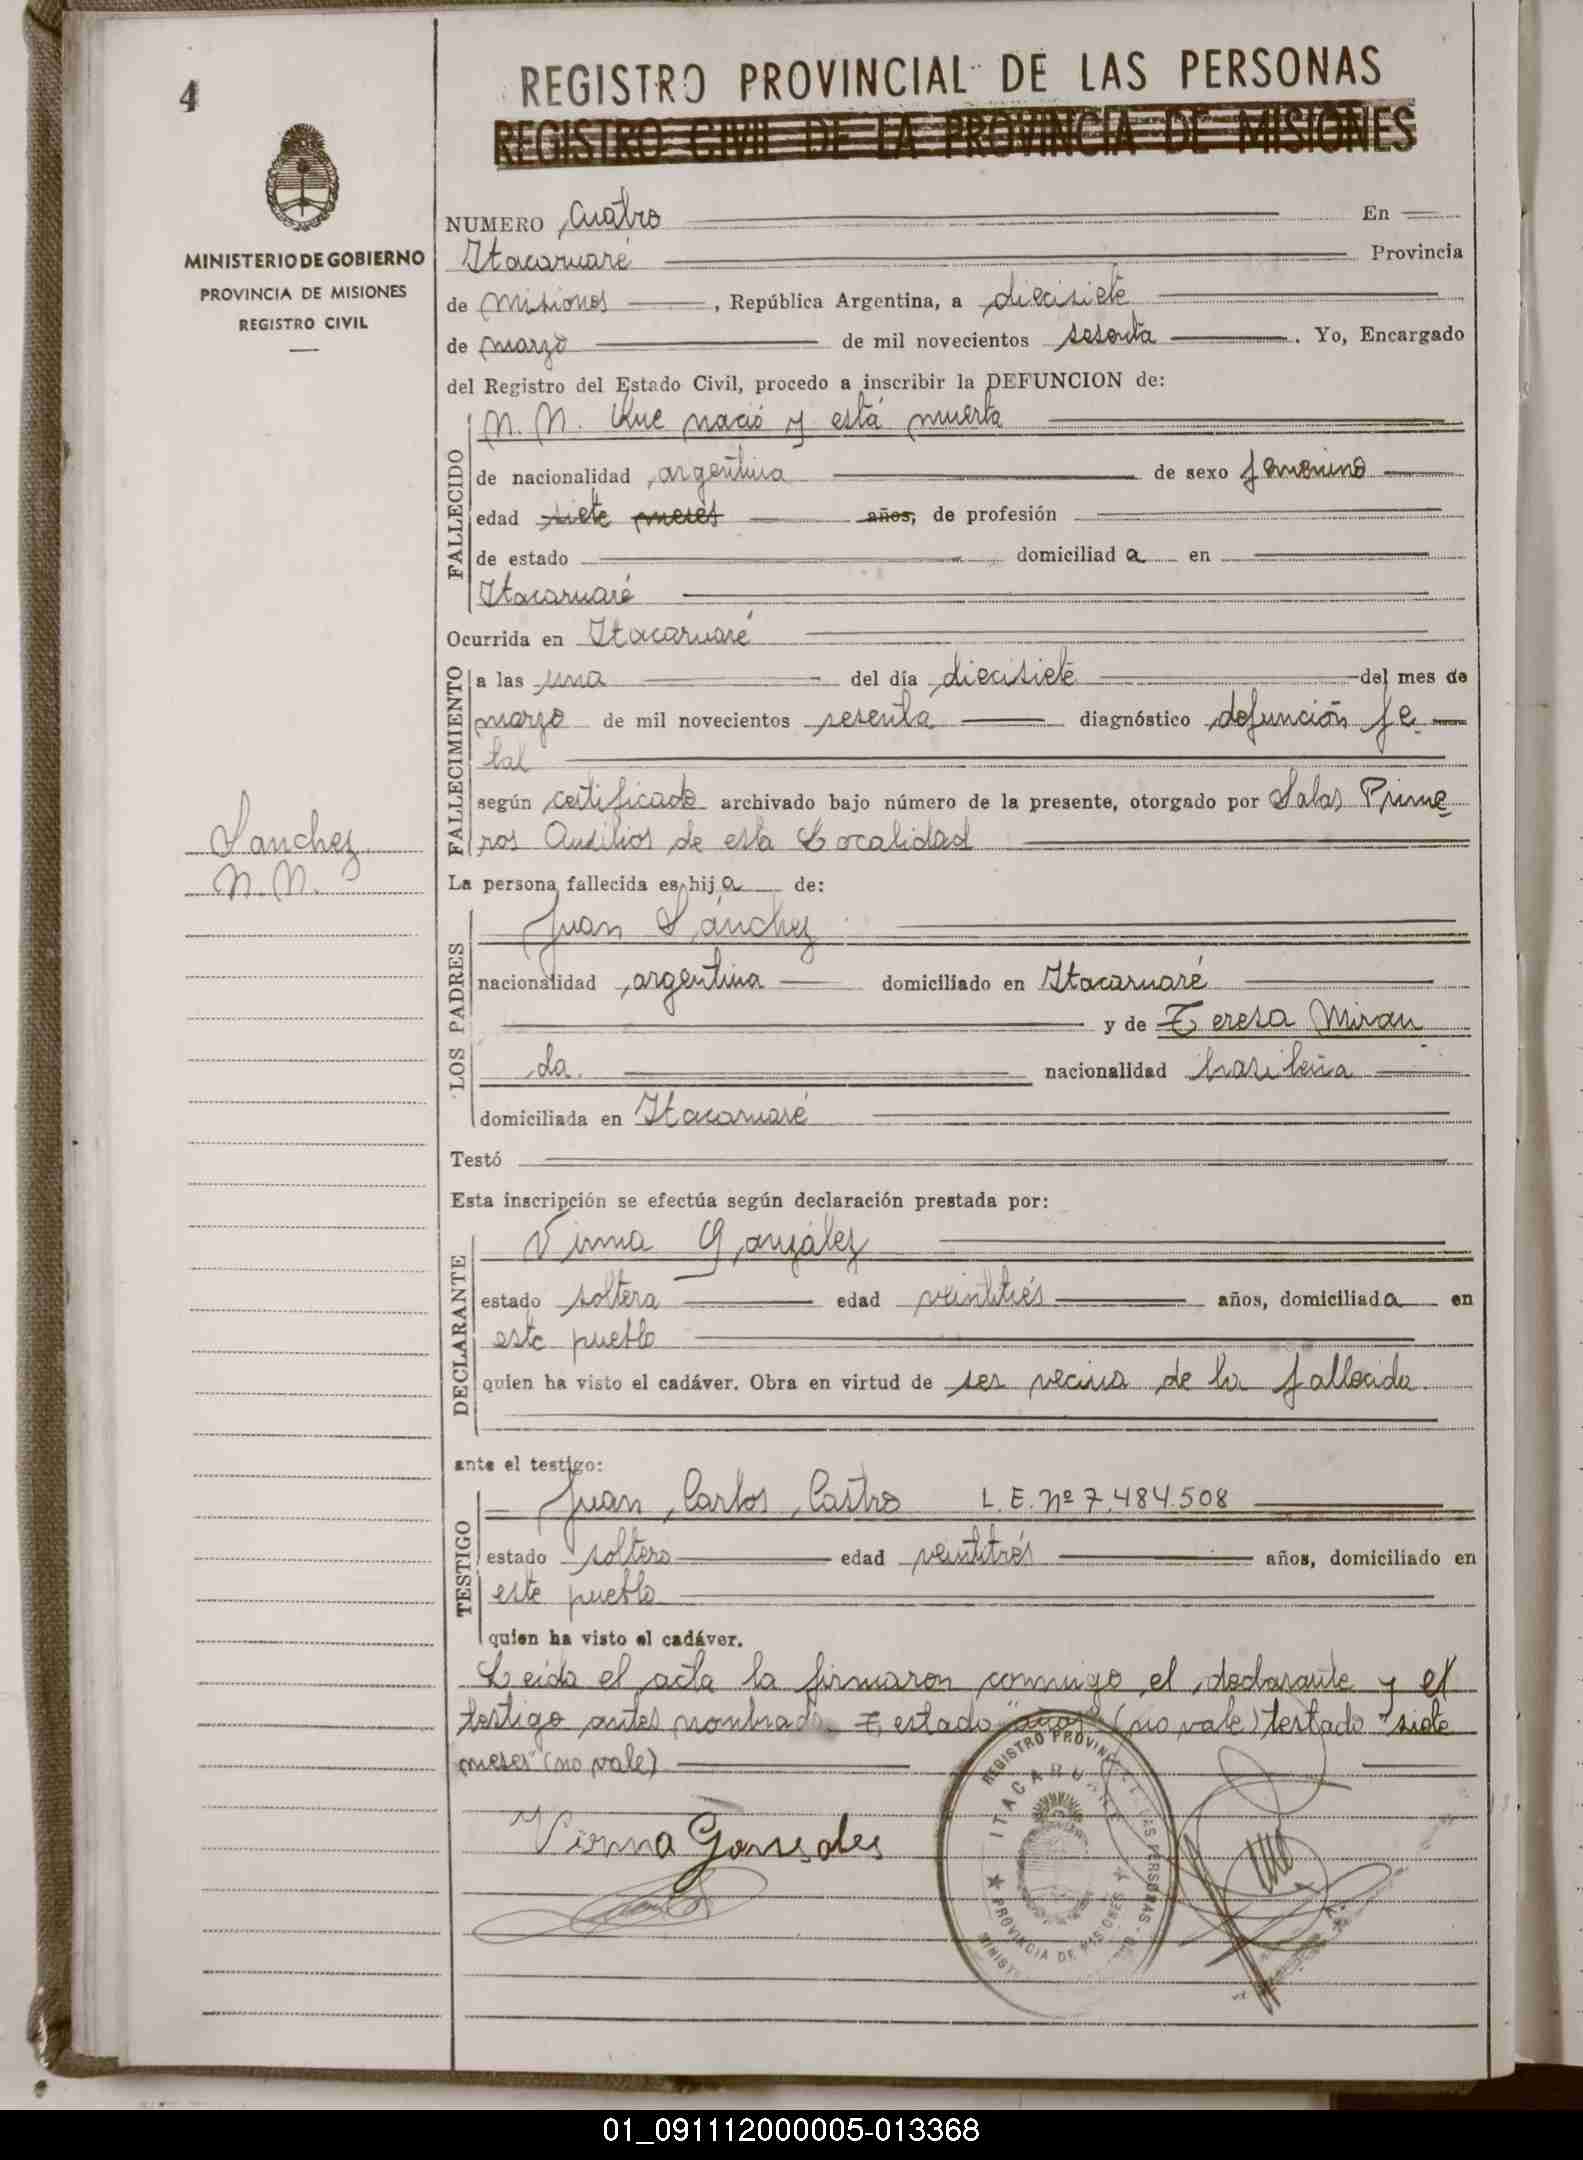 4
REGISTRO PROVINCIAL DE LAS PERSONAS
REGISTRO CIVIL DE LA PROVINCIA DE MISIONES
MINISTERIO DE GOBIERNO
PROVINCIA DE MISIONES
REGISTRO CIVIL
NUMERO Cuatro En
Itacaruaré Provincia
de Misiones, República Argentina, a diecisiete
de marzo de mil novecientos sesenta. Yo, Encargado
del Registro del Estado Civil, procedo a inscribir la DEFUNCION de:
FALLECIDO
N. N. Que nació y está muerta
de nacionalidad argentina de sexo femenino
edad siete meses años, de profesión
de estado domiciliada en
Itacaruaré
Ocurrida en Itacaruaré
FALLECIMIENTO
a las una del día diecisiete del mes de
marzo de mil novecientos sesenta diagnóstico defunción fe
tal
según certificado archivado bajo número de la presente, otorgado por Salas Prime
ros Auxilios de esta Localidad
Sanchez
N. N.
La persona fallecida es hija de:
LOS PADRES
Juan Sánchez
nacionalidad argentina domiciliado en Itacaruaré
y de Teresa Miran
da. nacionalidad brasileña
domiciliada en Itacaruaré
Testó
Esta inscripción se efectúa según declaración prestada por:
DECLARANTE
Virma González
estado soltera edad veintitrés años, domiciliada en
este pueblo
quien ha visto el cadáver. Obra en virtud de ser vecina de la fallecida.
ante el testigo:
TESTIGO
Juan Carlos Castro L. E. Nº 7.484.508
estado soltero edad veintitrés años, domiciliado en
este pueblo
quien ha visto el cadáver.
Leida el acta la firmaron conmigo el declarante y el
testigo antes nombrado. Testado "años" (no vale) testado "siete
meses" (no vale)
Virma Gonsales
REGISTRO PROVINCIAL DE LAS PERSONAS
ITACARUARE
PROVINCIA DE MISIONES
01_091112000005-013368